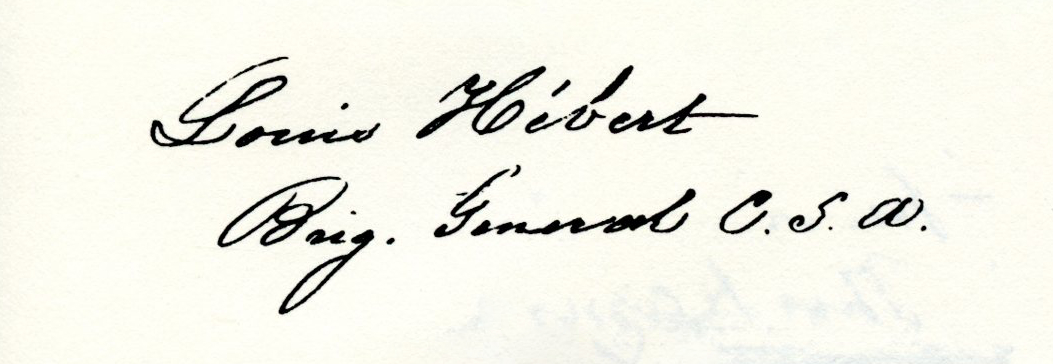 Louis Hébert
Brig. General C. S. A.